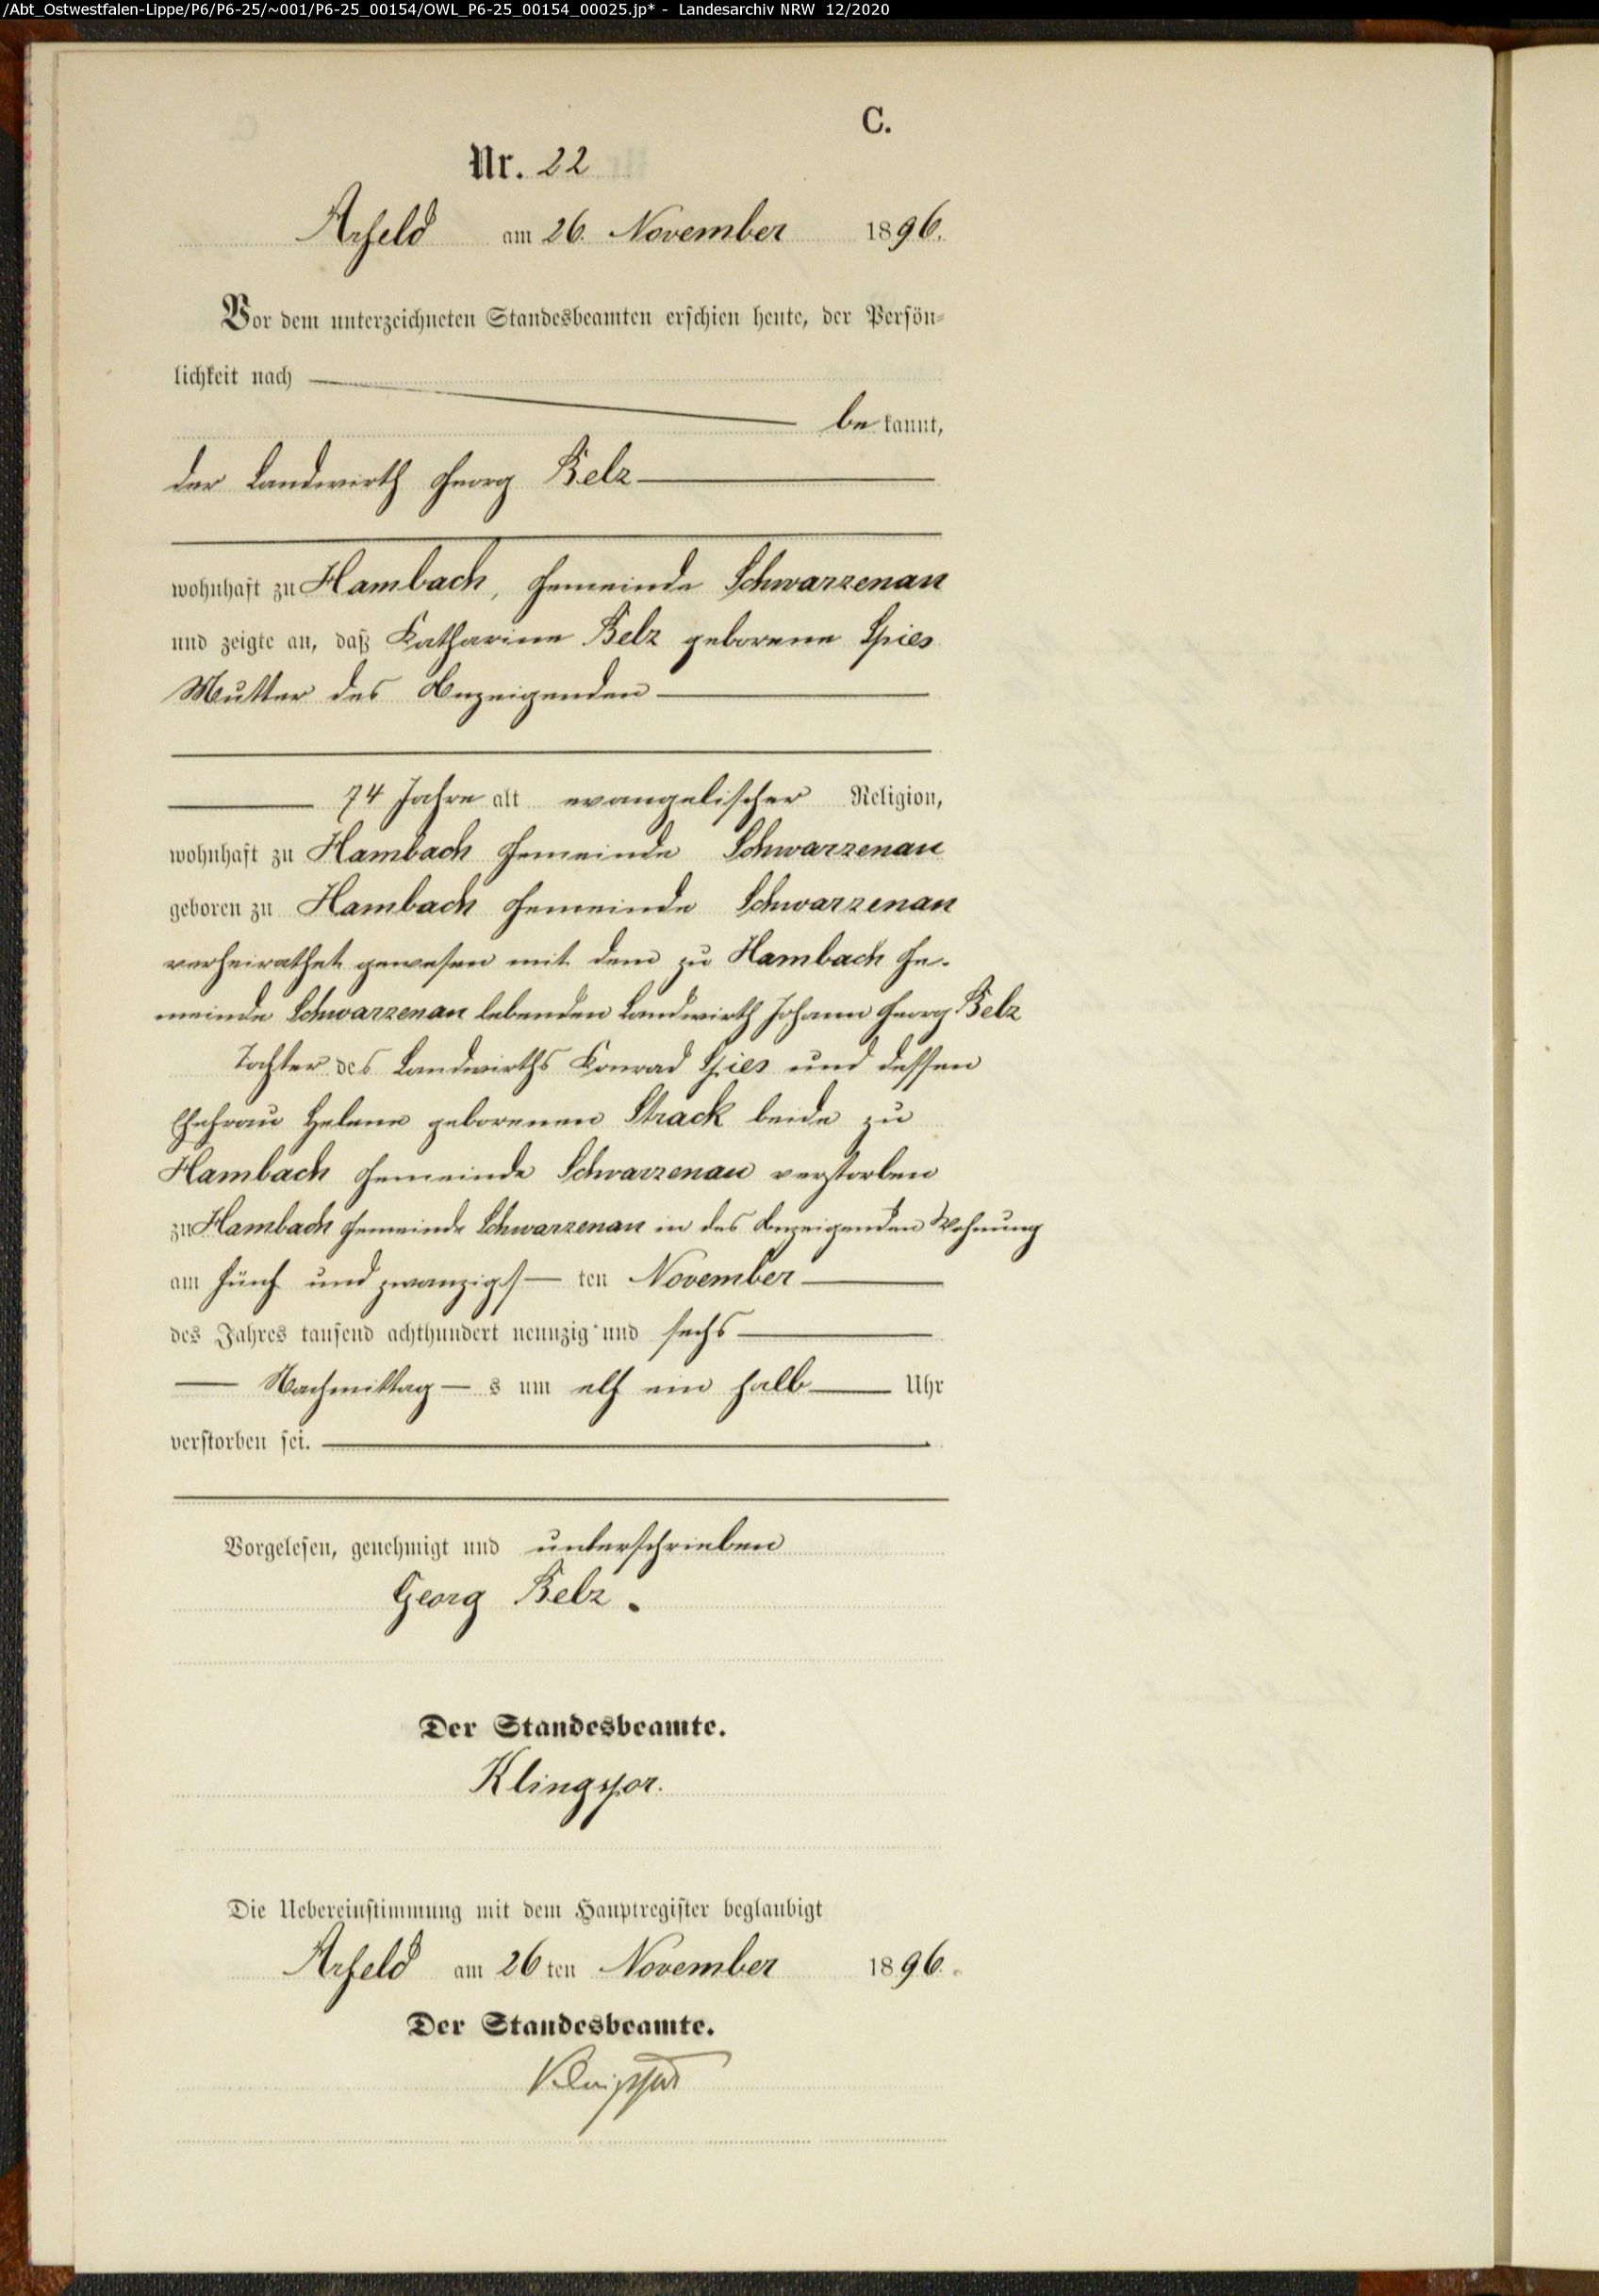 /Abt_Ostwestfalen-Lippe/P6/P6-25/~001/P6-25_00154/OWL_P6-25_00154_00025.jp* - Landesarchiv NRW 12/2020
C.
Nr. 22
Arfeld am 26. November 1896.
Vor dem unterzeichneten Standesbeamten erschien heute, der Persön-
lichkeit nach
be kannt,
der Landwirth Georg Belz
wohnhaft zu Hambach, Gemeinde Schwarzenau
und zeigte an, daß Katharine Belz geborene Spies
Mutter des Anzeigenden
74 Jahre alt evangelischer Religion,
wohnhaft zu Hambach Gemeinde Schwarzenau
geboren zu Hambach Gemeinde Schwarzenau
verheirathet gewesen mit dem zu Hambach Ge-
meinde Schwarzenau lebenden Landwirth Johann Georg Belz
Tochter des Landwirths Konrad Spies und dessen
Ehefrau Helene geborenen Strack beide zu
Hambach Gemeinde Schwarzenau verstorben
zu Hambach Gemeinde Schwarzenau in des Anzeigenden Wohnung
am fünf und zwanzigs ten November
des Jahres tausend achthundert neunzig und sechs
Nachmittag s um elf ein halb Uhr
verstorben sei.
Vorgelesen, genehmigt und unterschrieben
Georg Belz.
Der Standesbeamte.
Klingspor.
Die Uebereinstimmung mit dem Hauptregister beglaubigt
Arfeld am 26 ten November 1896.
Der Standesbeamte.
Klingspor